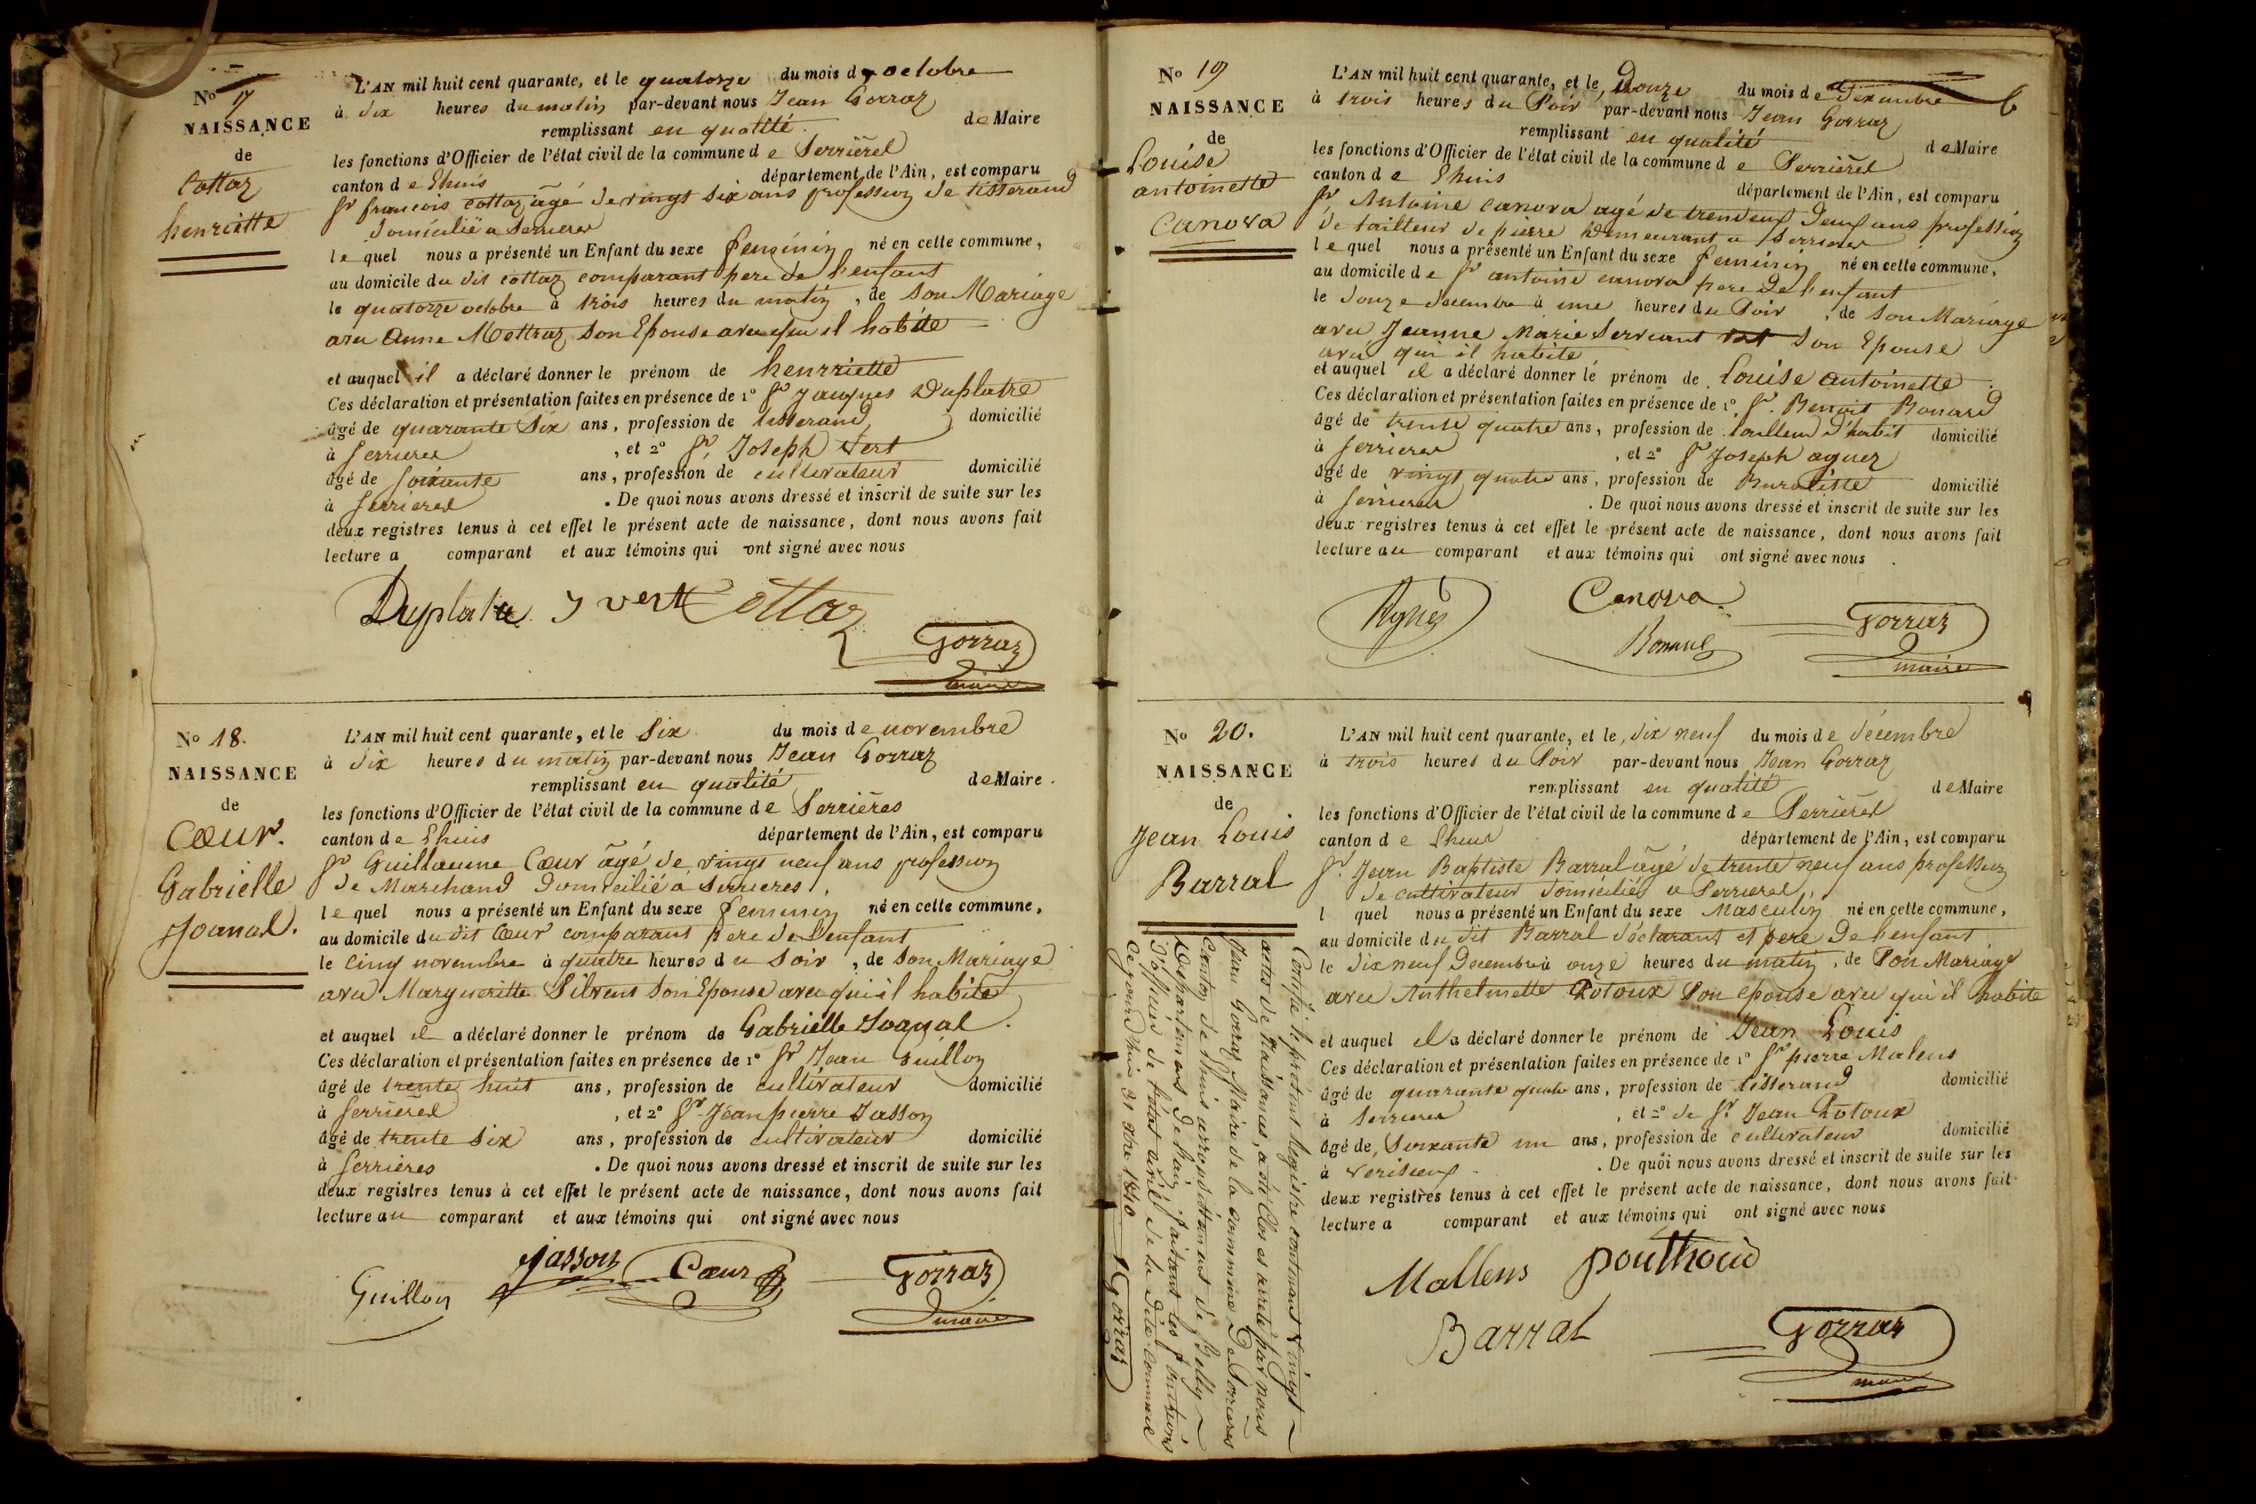 No 17
NAISSANCE
de
Cottaz
henriette
L'AN mil huit cent quarante, et le quatorze du mois d'octobre
à dix heures du matin par-devant nous Jean Gorraz
remplissant en qualité de Maire
les fonctions d'Officier de l'état civil de la commune de Serrières
canton de Lhuis département de l'Ain, est comparu
Sr francois cottaz âgé de vingt six ans profession de tisserand
domicilié a Serrieres
le quel nous a présenté un Enfant du sexe feminin né en cette commune,
au domicile du dit cottaz comparant pere de l'enfant
le quatorze octobre à trois heures du matin, de Son Mariage
avec Anne Mottraz Son Epouse avec qui il habite
et auquel il a déclaré donner le prénom de henrriette
Ces déclaration et présentation faites en présence de 1o Sr Jauques Duplatre
âgé de quarante Six ans, profession de tisserand domicilié
à Serrieres, et 2o Sr Joseph Vert
âgé de soixante ans, profession de cultivateur domicilié
à Serrieres. De quoi nous avons dressé et inscrit de suite sur les
deux registres tenus à cet effet le présent acte de naissance, dont nous avons fait
lecture a comparant et aux témoins qui ont signé avec nous
Duplatre J vert Cottaz
Gorraz
maire
No 18.
NAISSANCE
de
Cœur.
Gabrielle
L'AN mil huit cent quarante, et le Six du mois de novembre
à dix heures du matin par-devant nous Jean Gorraz
remplissant en qualité de Maire.
les fonctions d'Officier de l'état civil de la commune de Serrières
canton de Lhuis département de l'Ain, est comparu
Sr Guillaume Cœur âgé de vingt neuf ans profession
de Marchand domicilié a Serrieres,
le quel nous a présenté un Enfant du sexe feminin né en cette commune,
au domicile du dit Cœur comparant pere de l'enfant
le cinq novembre à quatre heures du Soir, de Son Mariage
avec Margueritte Silvent Son Epouse avec qui il habite
et auquel il a déclaré donner le prénom de Gabrielle
Ces déclaration et présentation faites en présence de 1o Sr Jean Guillon
âgé de trente huit ans, profession de cultivateur domicilié
à Serrieres, et 2o Sr Jean pierre Jasson
âgé de trente six ans, profession de cultivateur domicilié
à Serrières. De quoi nous avons dressé et inscrit de suite sur les
deux registres tenus à cet effet le présent acte de naissance, dont nous avons fait
lecture au comparant et aux témoins qui ont signé avec nous
Guillon Jasson Cœur Gorraz
maire
No 19
NAISSANCE
de
Louise
antoinette
Canova
L'AN mil huit cent quarante, et le Douze du mois de Dexembre
à trois heures du Soir par-devant nous Jean Gorraz
remplissant en qualité de Maire
les fonctions d'Officier de l'état civil de la commune de Serrières
canton de Lhuis département de l'Ain, est comparu
Sr Antoine Canova agé de ans profession
de tailleur de pierre demeurant a Serrieres
le quel nous a présenté un Enfant du sexe feminin né en cette commune,
au domicile de Sr antoine canova pere de l'enfant
le douze decembre à une heures du Soir, de Son Mariage
avec Jeanne Marie Servant Son Epouse
avec qui il habite
et auquel il a déclaré donner le prénom de Louise antoinette
Ces déclaration et présentation faites en présence de 1o, Sr. Benoit Bonard
âgé de trente quatre ans, profession de tailleur d'habit domicilié
à Serrieres, et 2o Sr Joseph agnez
âgé de vingt quatre ans, profession de Buraliste domicilié
à Serrieres. De quoi nous avons dressé et inscrit de suite sur les
deux registres tenus à cet effet le présent acte de naissance, dont nous avons fait
lecture au comparant et aux témoins qui ont signé avec nous.
Agnès Canova Gorraz
Bonard maire
No 20.
NAISSANCE
de
Jean Louis
Barral
L'AN mil huit cent quarante, et le, dix neuf du mois de décembre
à trois heures du Soir par-devant nous Jean Gorraz
remplissant en qualité de Maire
les fonctions d'Officier de l'état civil de la commune de Serrières
canton de Lhuis département de l'Ain, est comparu
Sr. Jean Baptiste Barral âgé de trente neuf ans profession
de cultivateur domicilié a Serrieres,
l quel nous a présenté un Enfant du sexe Masculin né en cette commune,
au domicile du dit Barral déclarant et pere de l'enfant
le dix neuf Decembre à onze heures du matin, de Son Mariage
avec Anthelmette Son epouse avec qui il habite
et auquel il a déclaré donner le prénom de Jean Louis
Ces déclaration et présentation faites en présence de 1o Sr pierre Malens
âgé de quarante quatre ans, profession de tisserand domicilié
à Serrieres, et 2o de Sr. Jean
âgé de, Soixante un ans, profession de cultivateur domicilié
à. De quoi nous avons dressé et inscrit de suite sur les
deux registres tenus à cet effet le présent acte de naissance, dont nous avons fait
lecture a comparant et aux témoins qui ont signé avec nous
Mallens pouthoud
Barral Gorraz
maire
Certifié le présent Registre contenant vingt
actes de Naissances, a été Clos et arrêté par nous
Jean Gorraz Maire de la commune De Serrieres
Canton de Lhuis arrondissement de Belley
Département de l'ain, faisant les fonctions
d'officier de l'état civil de la dite commune
Ce jourd'hui 31 xbre 1840 Gorraz